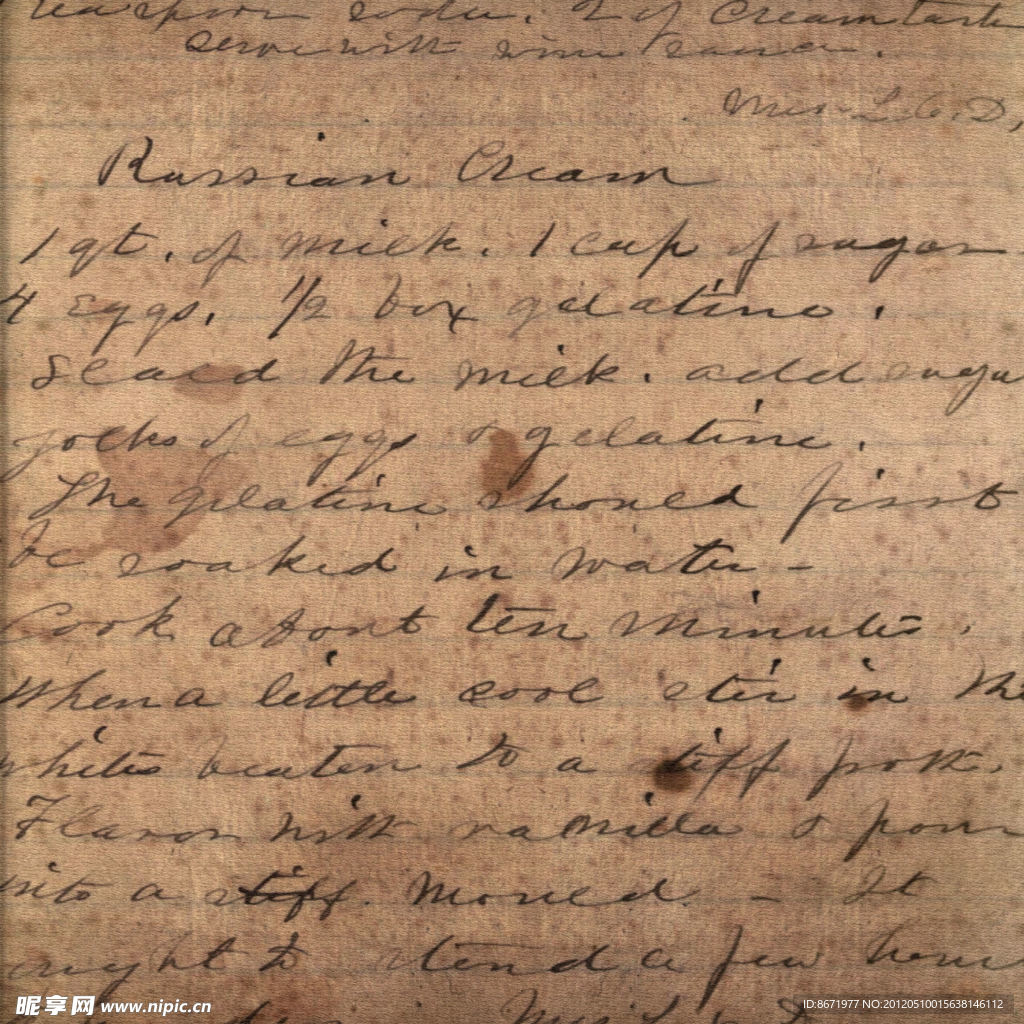 teaspoon soda. 2 of Cream tarta
Serve with wine sauce.
Mrs L.C.D.
Russian Cream
1 qt. of milk. 1 cup of sugar
4 eggs. 1/2 box gelatine.
Scald the milk. add suga
yolks of eggs & gelatine.
The gelatine should first
be soaked in water -
Cook about ten minutes.
When a little cool stir in the
whites beaten to a stiff froth.
Flavor with vanilla & pour
into a stiff mould. - It
ought to stand a few hours
Mrs L. D
昵享网 www.nipic.cn
ID:8671977 NO:20120510015638146112